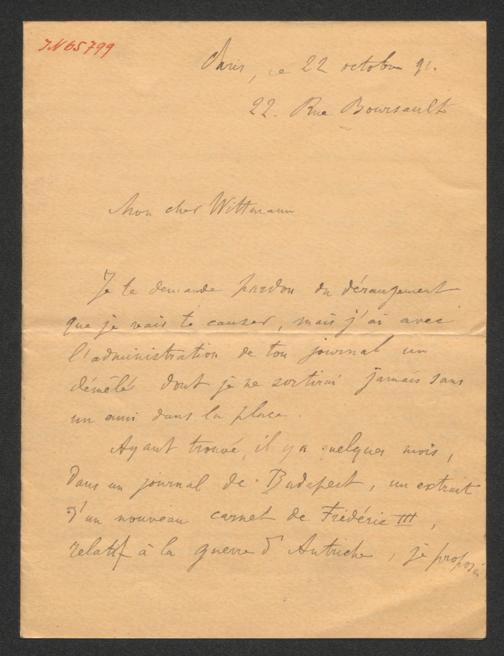 JN 65799
Paris, ce 22 octobre 91.
22. Rue Boursault
Mon cher Wittmann
Je te demande pardon du dérangement
que je vais te causer, mais j'ai avec
l'administration de ton journal un
démêlé dont je ne sortirai jamais sans
un ami dans la place.
Ayant trouvé, il y a quelques mois,
dans un journal de Budapest, un extrait
d'un nouveau carnet de Frédéric III,
relatif à la guerre d'Autriche, je proposai